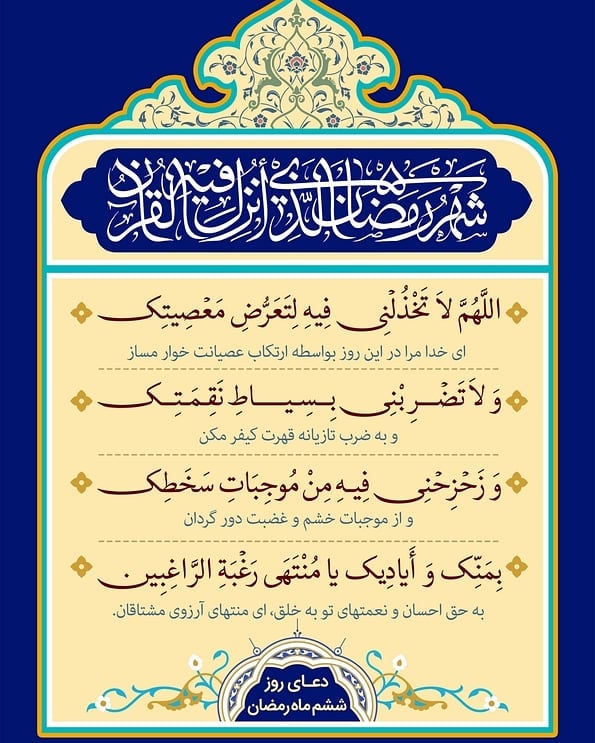 شَهْرُ رَمَضَانَ الَّذِي أُنْزِلَ فِيهِ الْقُرْآنُ
اللَّهُمَّ لاَ تَخْذُلْنِی فِیهِ لِتَعَرُّضِ مَعْصِیَتِکَ
ای خدا مرا در این روز بواسطه ارتکاب عصیانت خوار مساز
وَ لاَ تَضْرِبْنِی بِسِیَاطِ نَقِمَتِکَ
و به ضرب تازیانه قهرت کیفر مکن
وَ زَحْزِحْنِی فِیهِ مِنْ مُوجِبَاتِ سَخَطِکَ
و از موجبات خشم و غضبت دور گردان
بِمَنِّکَ وَ أَیَادِیکَ یَا مُنْتَهَى رَغْبَةِ الرَّاغِبِینَ
به حق احسان و نعمتهای تو به خلق، ای منتهای آرزوی مشتاقان.
دعـای روز
ششم ماه رمضان